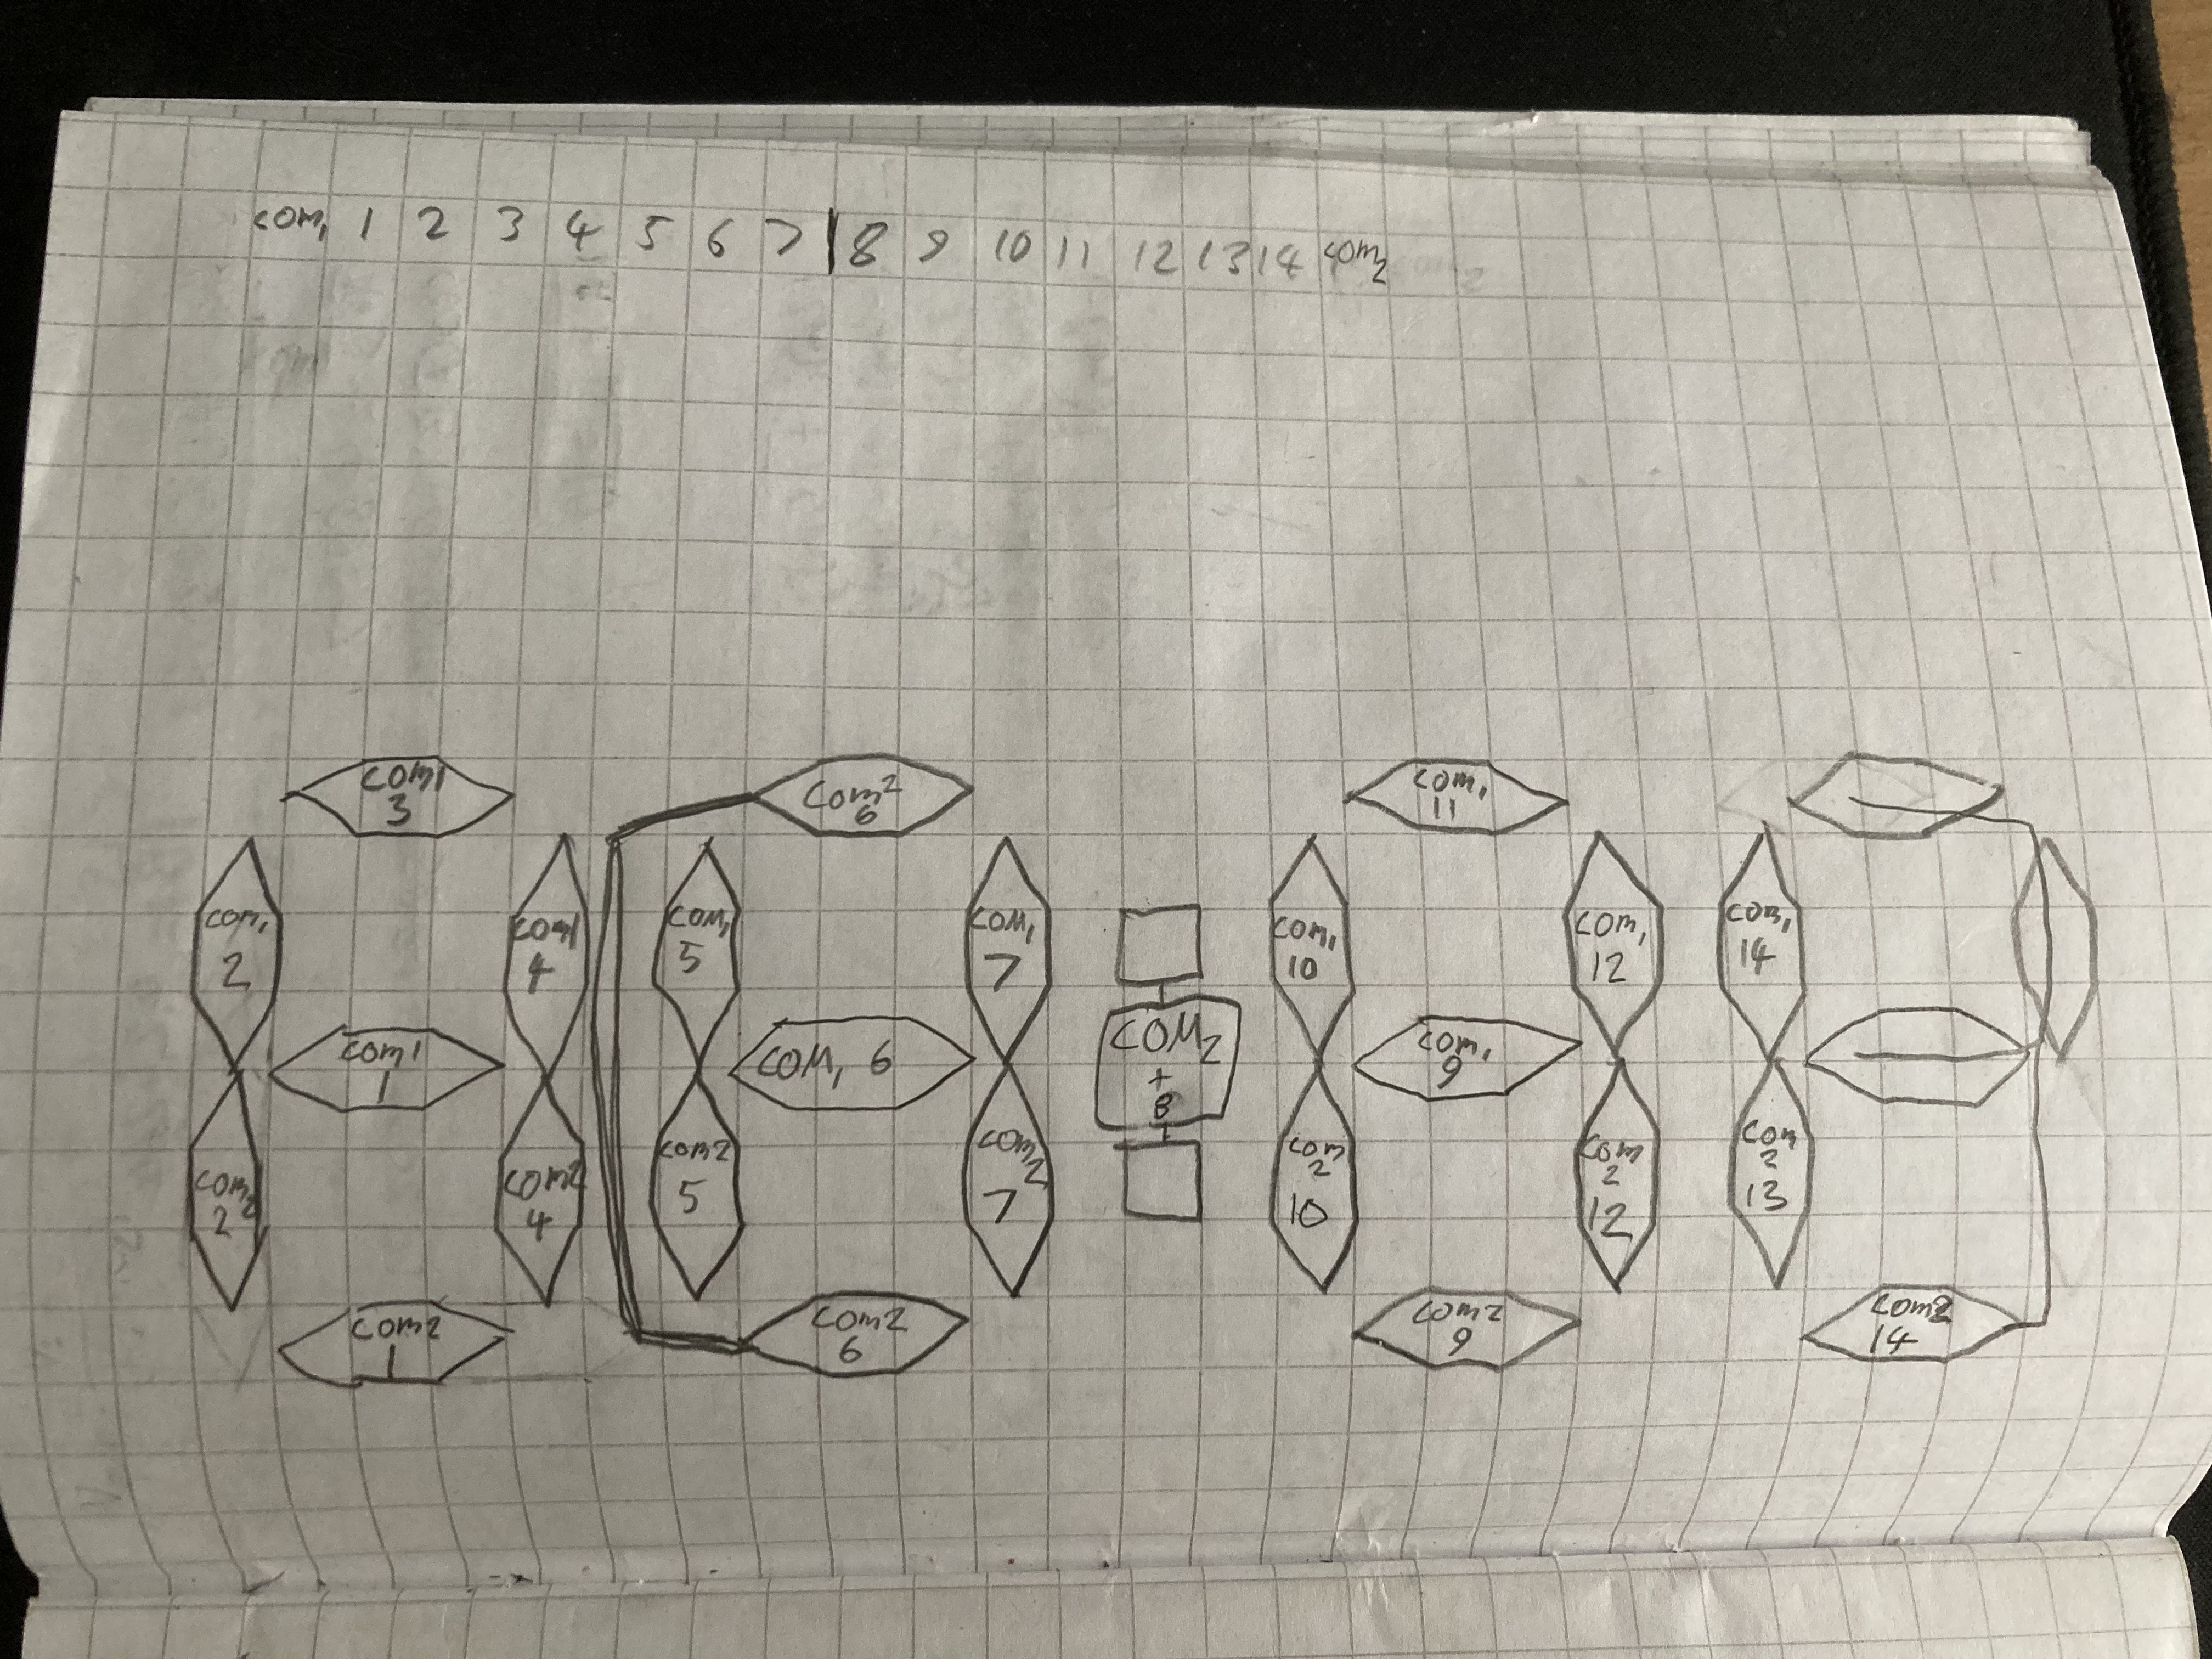 com1 1 2 3 4 5 6 7 | 8 9 10 11 12 13 14 com2
com1
3
com2
6
com1
11
com1
2
com1
4
com1
5
com1
7
com1
10
com1
12
com1
14
com1
1
COM1 6
COM2
+8
com1
9
com2
2
com2
4
com2
5
com2
7
com
2
10
com
2
12
com
2
13
com2
1
com2
6
com2
9
com2
14